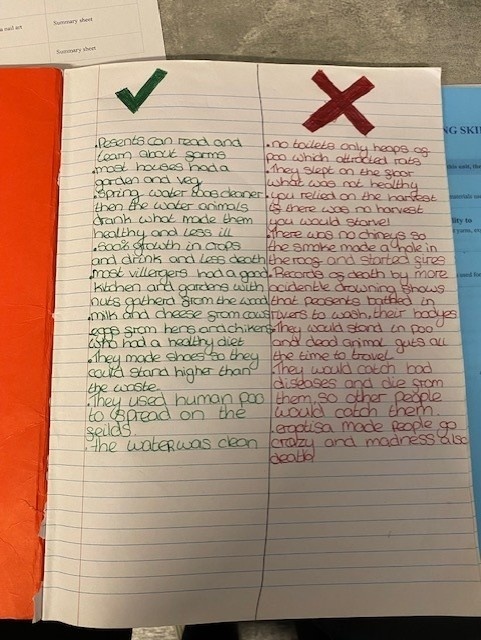 a nail art
Summary sheet
Summary sheet
.Pesents can read and
learn about farms
.most houses had a
garden and veg
.Spring water was cleaner
then the water animals
drank what made them
healthy and less ill
.500% growth in crops
and drink and less death
.most villergers had a good
kitchen and gardens with
nuts gatherd from the wood
.milk and cheese from cows
eggs from hens and chikens
who had a healthy diet
.They made shoes so they
could stand higher than
the waste.
.They used human poo
to spread on the
feilds.
.the water was clean
.no toilets only heaps of
poo which attracted rats
.They slept on the floor
what was not healthy
.you relied on the harvest
is there was no harvest
you would starve!
.There was no chineys so
the smoke made a hole in
the roof and started fires
.Records of death by more
acidentle drowning shows
that peosents bathed in
rivers to wash their bodyes
.They would stand in poo
and dead animal guts all
the time to travel.
.They would catch bad
diseases and die from
them, so other people
would catch them.
.eroptisa made people go
crazy and madness also
death!
NG SKI